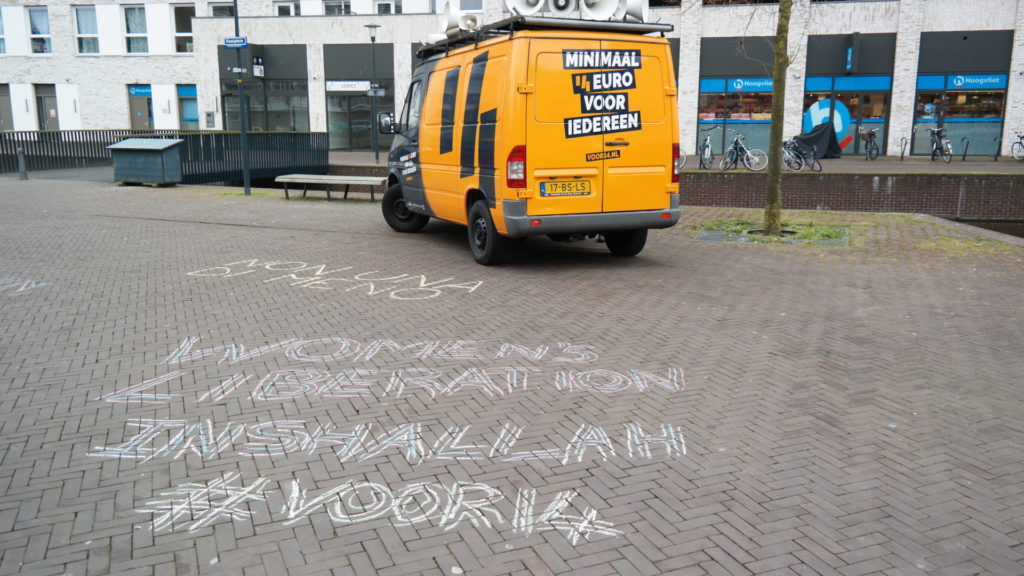 Hoogvliet
Hoogvliet
MINIMAAL
14 EURO
VOOR
IEDEREEN
VOOR14.NL
17-BS-LS
14
NON UNA
DI MENO
WOMEN'S
LIBERATION
INSHALLAH
#VOOR14